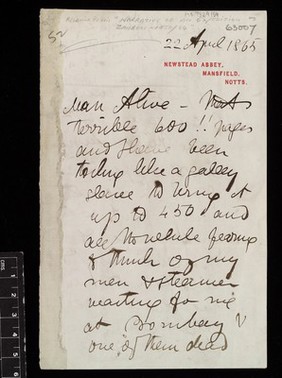 63007
22 April 1865
NEWSTEAD ABBEY,
MANSFIELD,
NOTTS.
Man Alive -
terrible 600!! pages
and I have been
toiling like a galley
slave to bring it
up to 450 and
all the while fearing
& think of my
men & steamer
waiting for me
at Bombay
one of them dead